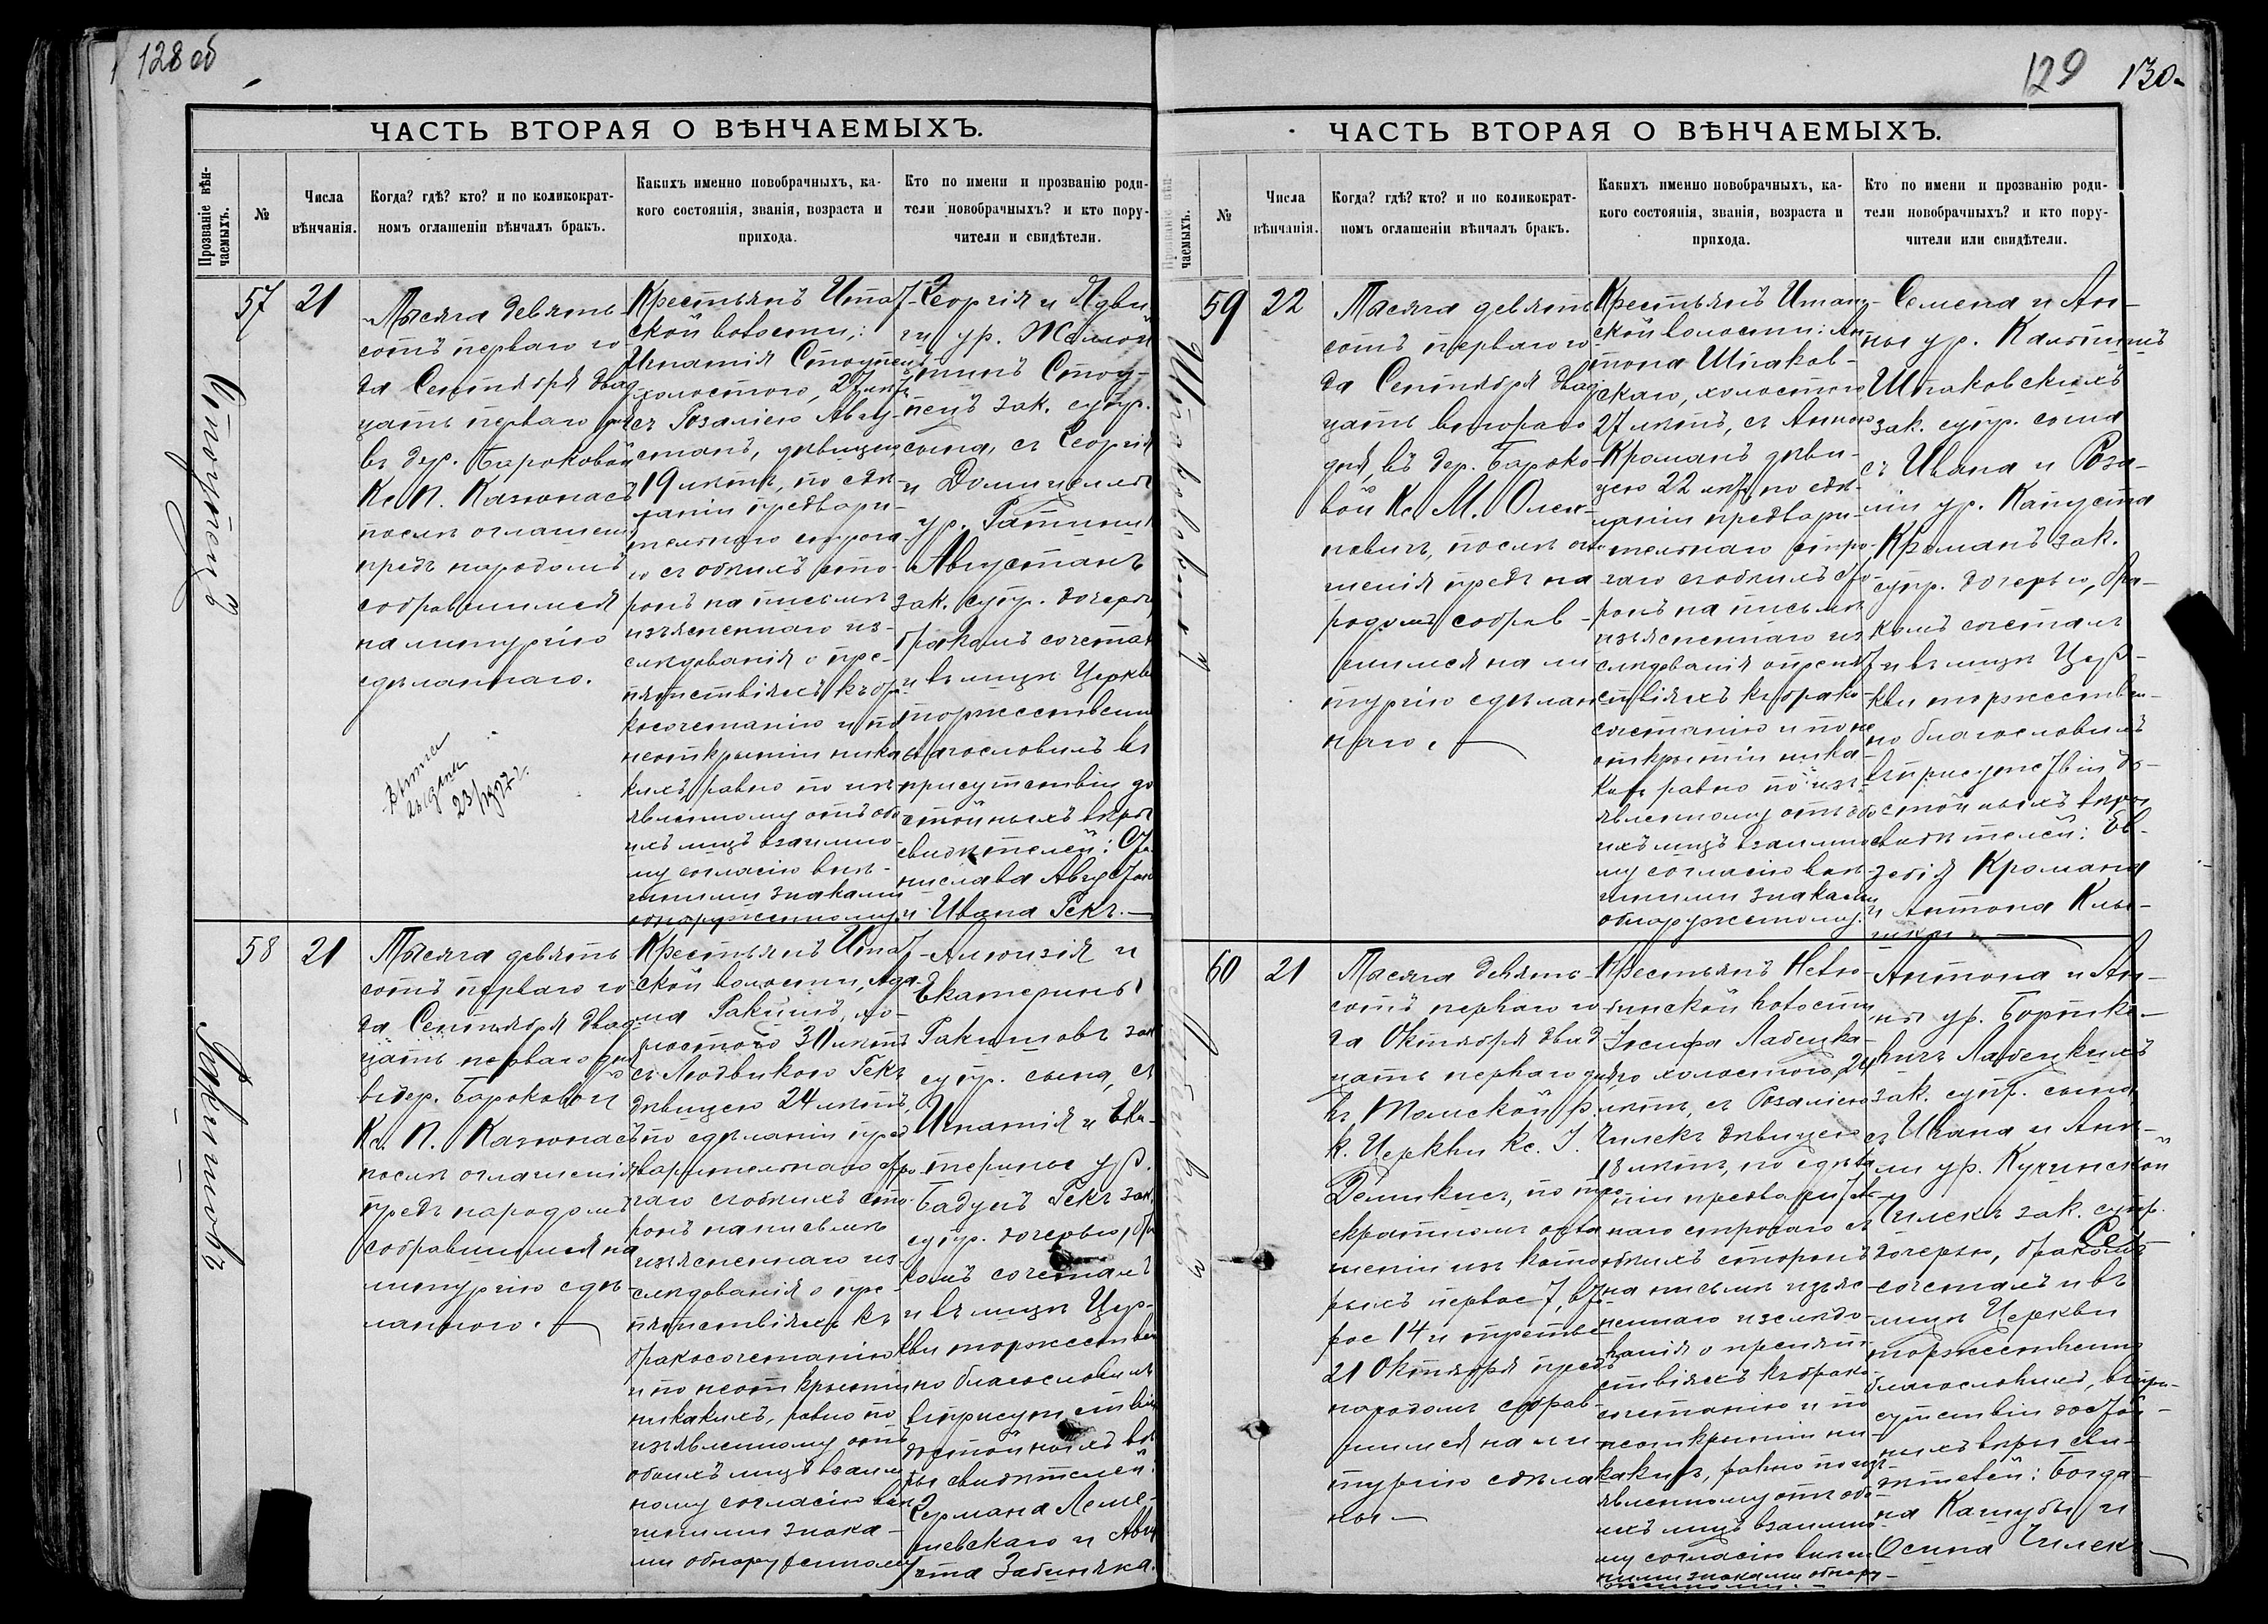 128 об
ЧАСТЬ ВТОРАЯ О ВѢНЧАЕМЫХЪ.
Прозваніе вѣн-
чаемыхъ.
№
Числа
вѣнчанія.
Когда? гдѣ? кто? и по коликократ-
номъ оглашеніи вѣнчалъ бракъ.
Какихъ именно новобрачныхъ, ка-
кого состоянія, званія, возраста и
прихода.
Кто по имени и прозванію роди-
тели новобрачныхъ? и кто пору-
чители и свидѣтели.
Стоупецъ
57
21
Тысяча девять
сотъ перваго го
да Сентября двад
цать перваго дня
въ дер. Бароковой
Кс. П. Казюнасъ
послѣ оглашенія
предъ народомъ
собравшимся
на литургію
сдѣланнаго.
23/IX 27 г.
Крестьянъ Итат
ской волости:
Игнатія Стоупец
холостого, 27 лѣтъ
съ Розаліею Авгу-
станъ, дѣвицею
19 лѣтъ, по сдѣ
ланіи предвари-
тельнаго строга
го съ обѣихъ сто-
ронъ на письмѣ
изъясненнаго из-
слѣдованія о пре-
пятствіяхъ къ бра
косочетанію и по
неоткрытіи ника
кихъ равно по изъ
явленному отъ обо
ихъ лицъ взаимно
му согласію внѣ-
шними знаками
обнаруженному
Георгія и Ядви
ги ур.
Стоу-
пецъ зак. супр.
сына, съ Георгія
и Домицели
ур.
Августанъ
зак. супр. дочерью,
бракомъ сочеталъ
и въ лицѣ Церкви
торжественно
благословилъ въ
присутствіи до
стойныхъ вѣры
свидѣтелей: Ста
нислава Августан
и Ивана Гекъ.
Гакишовъ
58
21
Тысяча девять
сотъ перваго го
да Сентября двад
цать перваго дня
въ дер. Бароковой
Кс. П. Казюнасъ
послѣ оглашенія
предъ народомъ
собравшимся на
литургію сдѣ
ланного.
Крестьянъ Итат
ской волости, Ада-
ма Гакишъ, хо-
лостого 30 лѣтъ
съ Людвикою Гекъ
дѣвицею 24 лѣтъ,
по сдѣланіи пред
варительнаго стро
гаго съ обѣихъ сто
ронъ на письмѣ
изъясненнаго из-
слѣдованія о пре-
пятствіяхъ къ
бракосочетанію
и по неоткрытіи
никакихъ, равно по
изъявленному отъ
обоихъ лицъ взаим
ному согласію внѣ
шними знака-
ми обнаруженному
Алоизія и
Екатерины
Гакишовъ зак
супр. сына, съ
Игнатія и Ека-
терины ур.
Бадунъ Гекъ зак.
супр. дочерью, бра
комъ сочеталъ
и въ лицѣ Цер-
кви торжествен
но благословилъ
въ присутствіи
достойныхъ вѣ
ры свидѣтелей:
Германа Леме-
шевскаго и Авгу
ста Забиняка.
129 130
ЧАСТЬ ВТОРАЯ О ВѢНЧАЕМЫХЪ.
Прозваніе вѣн-
чаемыхъ.
№
Числа
вѣнчанія.
Когда? гдѣ? кто? и по коликократ-
номъ оглашеніи вѣнчалъ бракъ.
Какихъ именно новобрачныхъ, ка-
кого состоянія, званія, возраста и
прихода.
Кто по имени и прозванію роди-
тели новобрачныхъ? и кто пору-
чители или свидѣтели.
Шпаковскій
59
22
Тысяча девять
сотъ перваго го
да Сентября двад
цать второго
дня, въ дер. Бароко-
вой Кс. М. Олех-
новичъ, послѣ огла
шенія предъ на
родомъ собрав-
шимся на ли
тургію сдѣлан
наго.
Крестьянъ Итат
ской волости: Ан
тона Шпаков-
скаго, холостого
27 лѣтъ, съ Анною
Кроманъ дѣви-
цею 22 лѣтъ, по сдѣ-
ланіи предвари-
тельнаго стро-
гаго съ обѣихъ сто
ронъ на письмѣ
изъясненнаго из
слѣдованія о препят
ствіяхъ къ брако
сочетанію и по не
открытіи ника-
кихъ равно по изъ-
явленному отъ обо
ихъ лицъ взаимно
му согласію внѣ-
шними знаками
обнаруженному
Семена и Ан-
ны ур.
Шпаковскихъ
зак. супр. сына
съ Ивана и Роза-
ліи ур. Капуста
Кроманъ зак.
супр. дочерью, бра-
комъ сочеталъ
и въ лицѣ Цер-
кви торжествен-
но благословилъ
въ присутствіи до-
стойныхъ вѣры
свидѣтелей: Ев-
зебія Кромана
и Антона
60
21
Тысяча девять-
сотъ перваго го
да Октября двад
цать перваго дня
въ Томской р.
к. Церкви Кс. І.
Демикисъ, по тре
кратномъ огла
шеніи изъ кото
рыхъ первое 7, вто
рое 14 и третье
21 Октября предъ
народомъ собрав-
шимся на ли-
тургію сдѣла
ны
Крестьянъ Нелю-
бинской волости
Іосифа Лабецка-
го холостого, 24
лѣтъ, съ Розаліею
Чилекъ дѣвицею
18 лѣтъ, по сдѣла
ніи предваритель
наго строгаго съ
обѣихъ сторонъ
на письмѣ изъяс
неннаго изслѣдо-
ванія о препят-
ствіяхъ къ брако-
сочетанію и по
неоткрытіи ни-
какихъ, равно по изъ-
явленному отъ обо
ихъ лицъ взаимно
му согласію внѣш
ними знаками обнару-
женному.
Антона и Ан-
ны ур.
Лабецкихъ
зак. супр. сына,
съ Ивана и Ан-
ны ур. Кучинской
Чилекъ зак. супр.
дочерью, бракомъ
сочеталъ и въ
лицѣ Церкви
торжественно
благословилъ, въ при-
сутствіи достой-
ныхъ вѣры сви-
дѣтелей: Богда-
на Кашубы и
Осипа Чилекъ